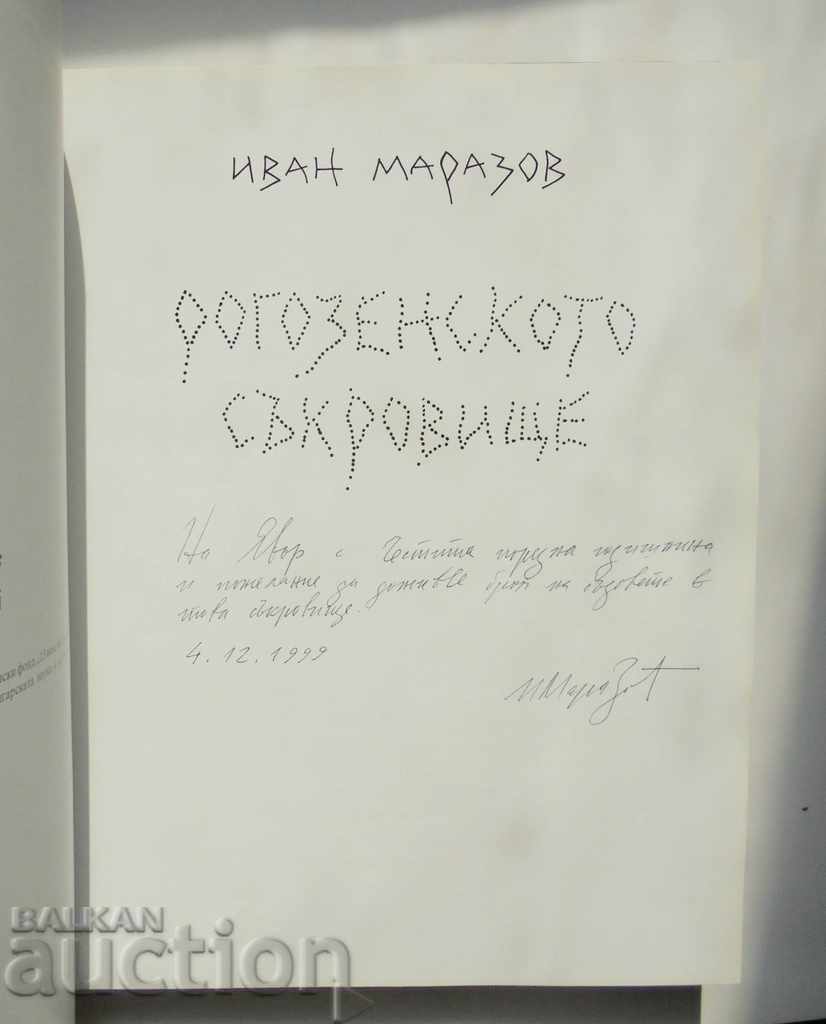 ИВАН МАРАЗОВ
РОГОЗЕНСКОТО
СЪКРОВИЩЕ
На Явор с честита поредна годишнина
и пожелание да доживее броя на съдовете в
това съкровище.
4.12.1999
И Маразов
BALKAN
auction